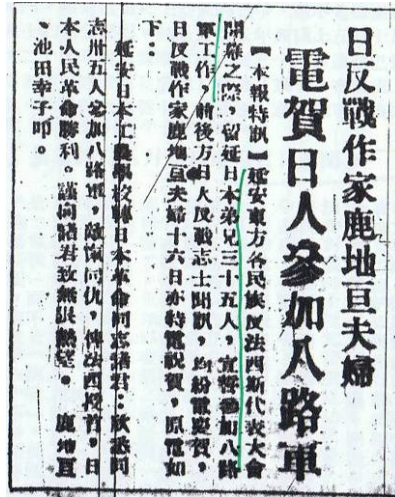 日反戰作家鹿地亘夫婦
電賀日人參加八路軍
【本報特訊】延安東方各民族反法西斯代表大會
開幕之際，留延日本弟兄三十五人，宣誓參加八路
軍工作，前後方日人反戰志士聞訊，均紛電慶賀，
日反戰作家鹿地亘夫婦十六日亦特電祝賀，原電如
下：
延安日本工農學校轉日本革命同志諸君：欣悉同
志卅五人參加八路軍，敵愾同仇，法西授首，日
本人民革命勝利。謹向諸君致無限熱望。　鹿地亘
、池田幸子叩。